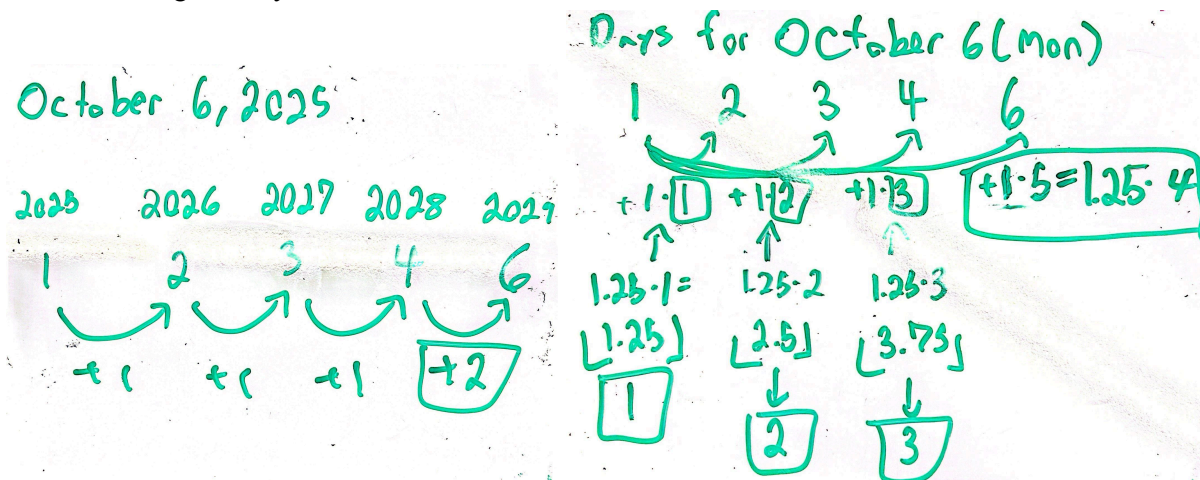 October 6, 2025
2025 2026 2027 2028 2029
1 2 3 4 6
+1 +1 +1 +2
Days for October 6 (Mon)
1 2 3 4 6
+1·1 +1·2 +1·3 +1·5=1.25·4
1.25·1= 1.25·2 1.25·3
⌊1.25⌋ ⌊2.5⌋ ⌊3.75⌋
1 2 3